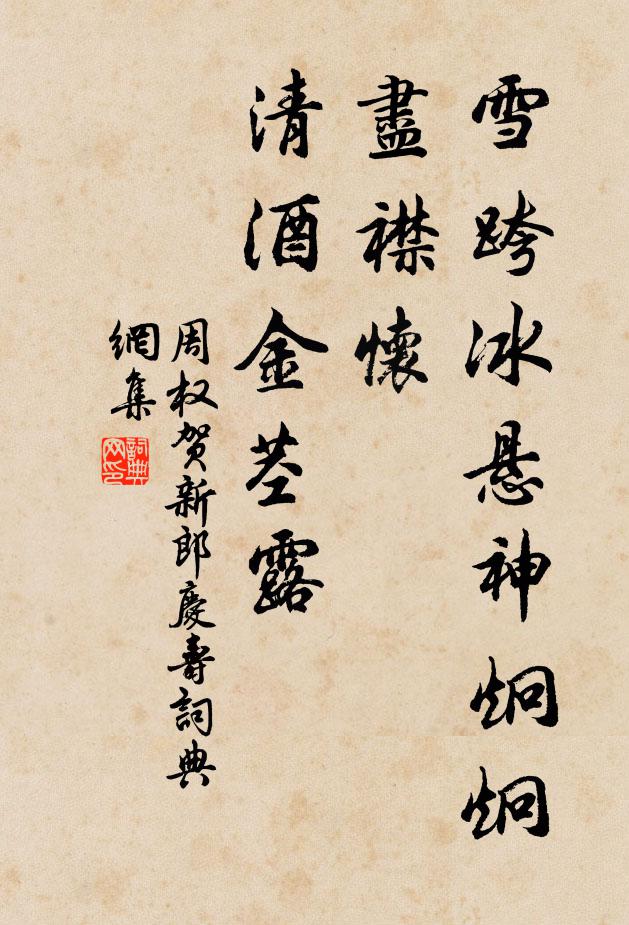 雪跨冰悬神炯炯
盡襟懷
清酒金茎露
周权贺新郎慶壽詞典
網集
詞典
网印